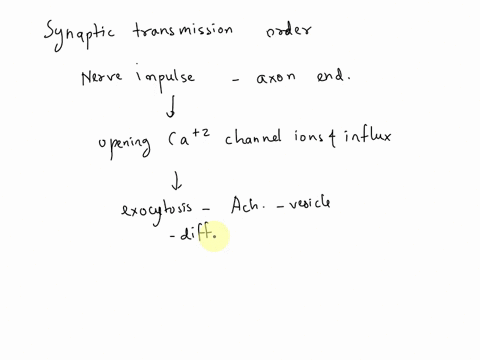 Synaptic transmission order
Nerve impulse - axon end.
opening Ca+2 channel ions & influx
exocytosis - Ach. - vesicle
- diff.